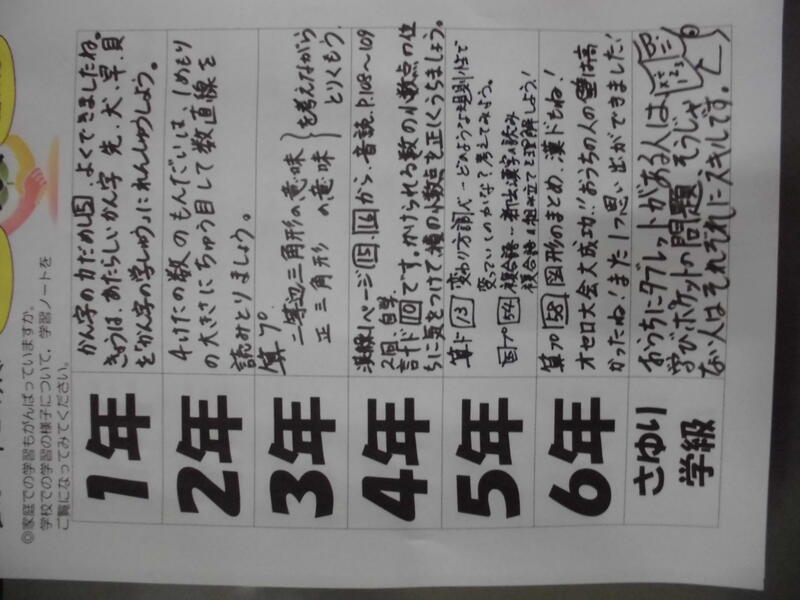 ◎家庭での学習もがんばっていますか。
学校での学習の様子について、学習ノートを
ご覧になってみてください。
1年
かん字の力だめし⑮、よくできましたね。
きょうは、あたらしいかん字 先、犬、早、貝
を「かん字の学しゅう」にれんしゅうしよう。
2年
4けたの数のもんだいは、1めもり
の大きさにちゅう目して数直線を
読みとりましょう。
3年
算プ。
二等辺三角形の意味
正三角形 の意味
を考えながら
とりくもう。
4年
漢練1ページ15、16から、音読P.108〜109
2回、自学
計ド10です。かけられる数の小数点の位
ちに気をつけて積の小数点を正しくうちましょう。
5年
算ド13 変わり方調べ…どのような規則性で
変っていくのかな?考えてみよう。
国プ54 複合語…新出漢字の読み
複合語の組み立てを理解しよう!
6年
算プ58 図形のまとめ、漢ドもね!
オセロ大会大成功!!おうちの人の壁は高
かったね!また1つ思い出ができました!
さゆり
学級
おうちにタブレットがある人は
学びポケットの問題、そうじゃ
ない人はそれぞれにスキルです。